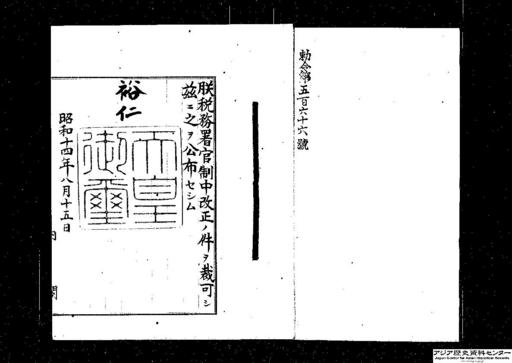 勅令第五百六十六號
朕税務署官制中改正ノ件ヲ裁可シ
茲ニ之ヲ公布セシム
裕仁
天皇
御璽
昭和十四年八月十五日
内
閣
アジア歴史資料センター
Japan Center for Asian Historical Records